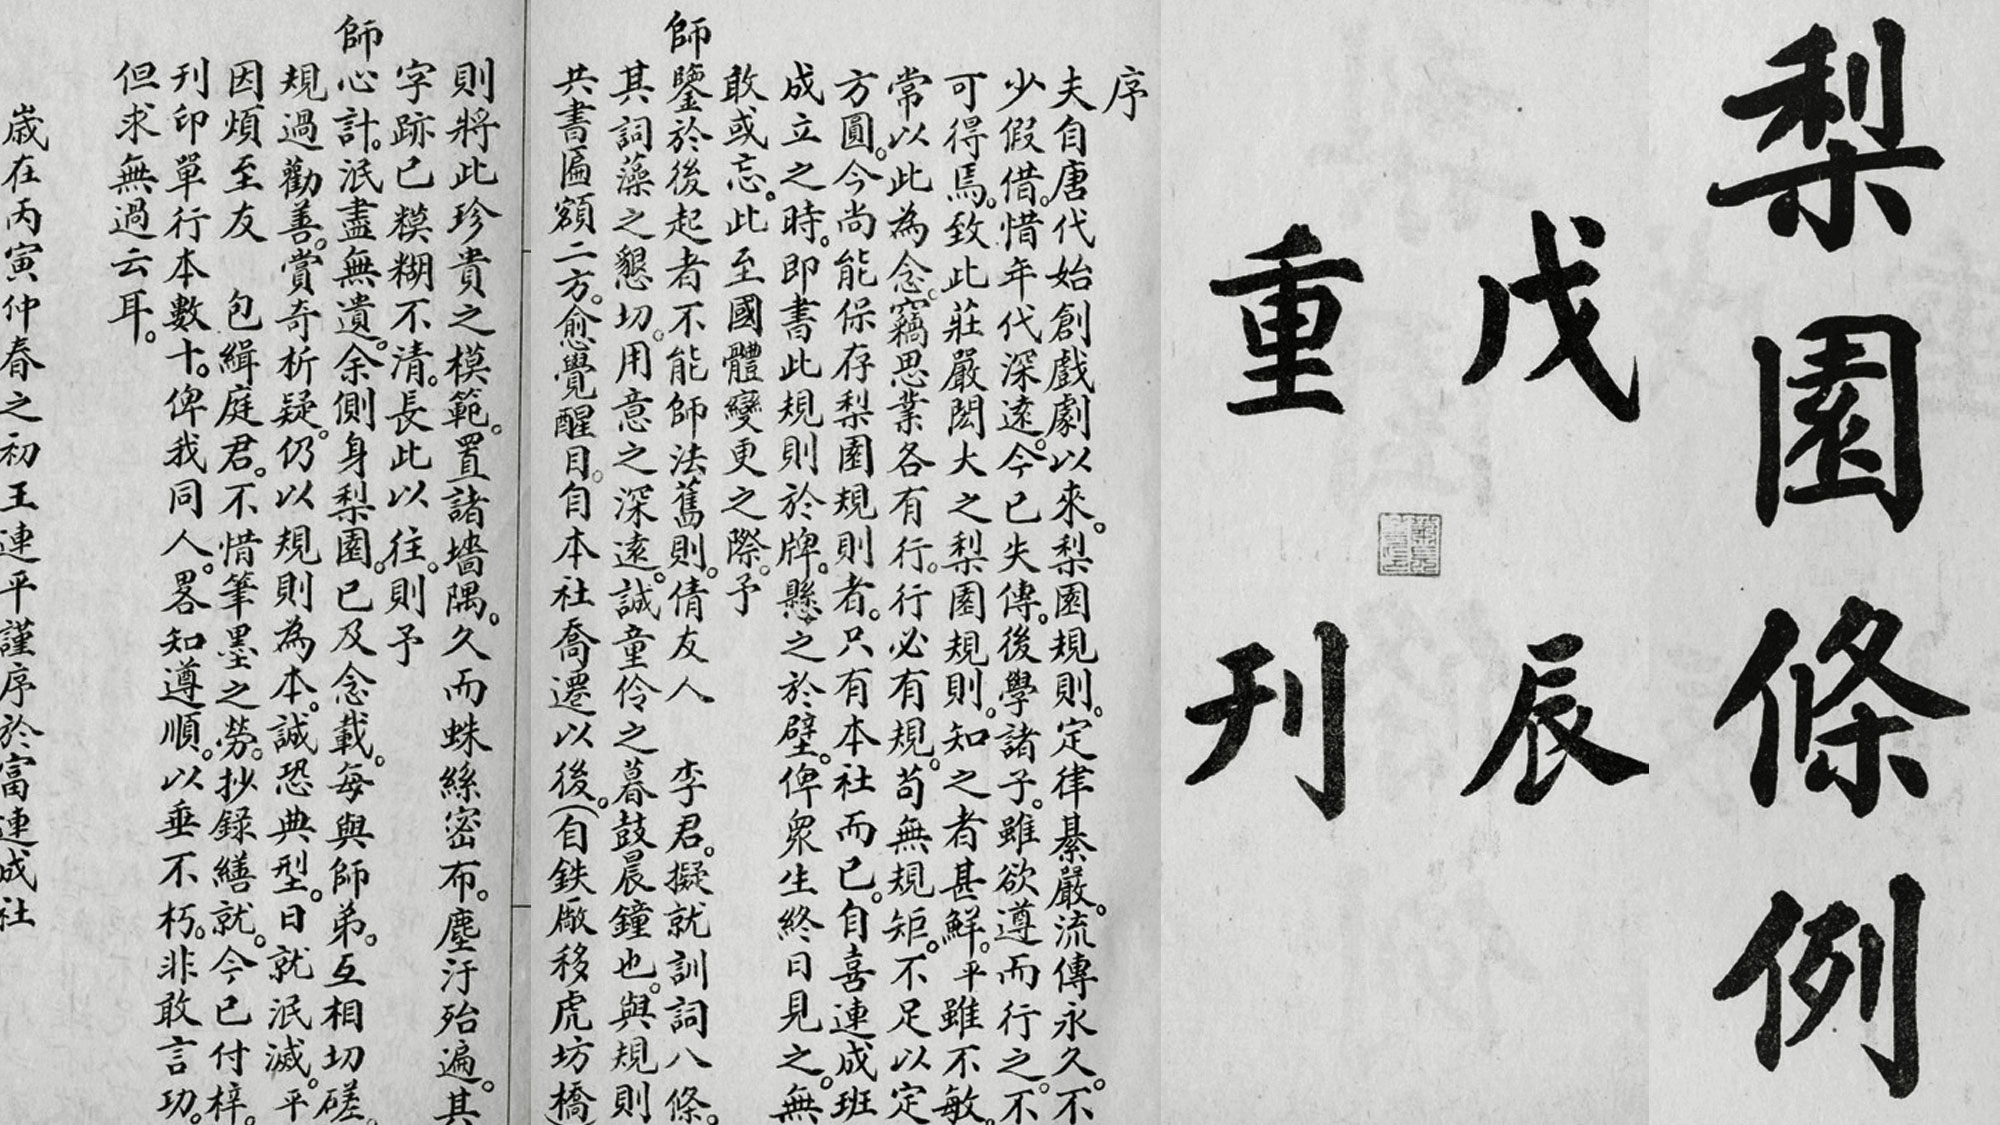 梨園條例
戊辰
重刊
序
夫自唐代始創戲劇以來。梨園規則。定律綦嚴。流傳永久。不
少假借。惜年代深遠。今已失傳。後學諸子。雖欲遵而行之。不
可得焉。致此莊嚴閎大之梨園規則。知之者甚鮮。平雖不敏。
常以此為念。竊思業各有行。行必有規。苟無規矩。不足以定
方圓。今尚能保存梨園規則者。只有本社而已。自喜連成班
成立之時。即書此規則於牌。懸之於壁。俾衆生終日見之。無
敢或忘。此至國體變更之際。予
師鑒於後起者不能師法舊則。倩友人 李君。擬就訓詞八條。
其詞藻之懇切。用意之深遠。誠童伶之暮鼓晨鐘也。與規則
共書匾額二方。愈覺醒目。自本社喬遷以後。(自鉄廠移虎坊橋)
則將此珍貴之模範。置諸墻隅。久而蛛絲密布。塵汙殆遍。其
字跡已糢糊不清。長此以往。則予
師心計。泯盡無遺。余側身梨園。已及念載。每與師弟。互相切磋。
規過勸善。賞奇析疑。仍以規則為本。誠恐典型。日就泯滅。平
因煩至友 包緝庭君。不惜筆墨之勞。抄録繕就。今已付梓。
刊印單行本數十。俾我同人。畧知遵順。以垂不朽。非敢言功。
但求無過云耳。
歲在丙寅仲春之初王連平謹序於富連成社